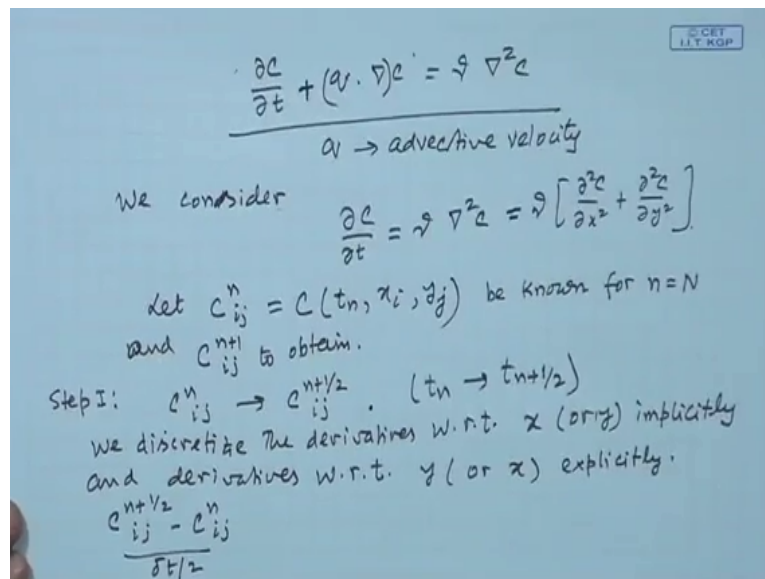 © CET
I.I.T. KGP
∂C/∂t + (q · ∇)C = ϑ ∇²C
q → advective velocity
We consider
∂C/∂t = ϑ ∇²C = ϑ [∂²C/∂x² + ∂²C/∂y²]
Let C^n_ij = C(t_n, x_i, y_j) be known for n = N
and C^{n+1}_ij to obtain.
Step I: C^n_ij → C^{n+1/2}_ij. (t_n → t_{n+1/2})
We discretize the derivatives w.r.t. x (or y) implicitly
and derivatives w.r.t. y (or x) explicitly.
C^{n+1/2}_ij - C^n_ij
δt/2